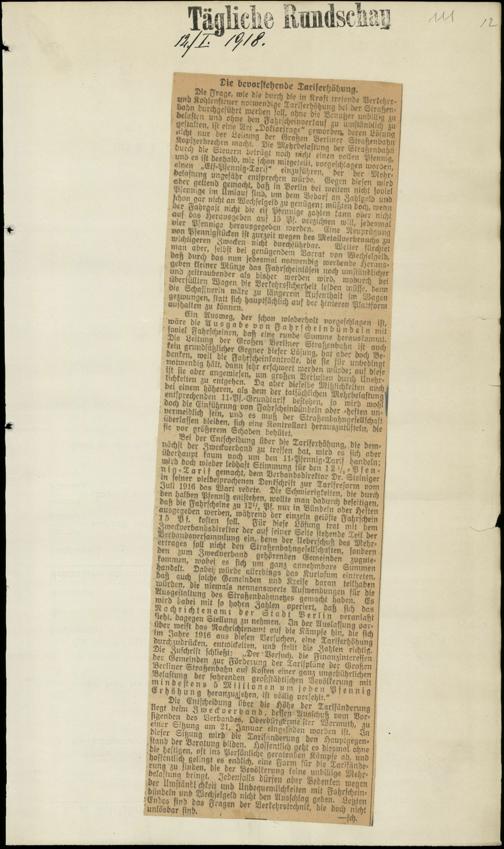 Tägliche Rundschau
12./I. 1918.
12
Die bevorstehende Tariferhöhung.
Die Frage, wie die durch die in Kraft tretende Verkehrs-
und Kohlensteuer notwendige Tariferhöhung bei der Straßen-
bahn durchgeführt werden soll, ohne die Benutzer unbillig zu
belasten und ohne den Fahrscheinverkauf zu umständlich zu
gestalten, ist eine Art „Doktorfrage" geworden, deren Lösung
nicht nur der Leitung der Großen Berliner Straßenbahn
Kopfzerbrechen macht. Die Mehrbelastung der Straßenbahn
durch die Steuern beträgt noch nicht einen vollen Pfennig,
und es ist deshalb, wie schon mitgeteilt, vorgeschlagen worden,
einen „Elf-Pfennig-Tarif" einzuführen, der der Mehr-
belastung ungefähr entsprechen würde. Gegen diesen wird
aber geltend gemacht, daß in Berlin bei weitem nicht soviel
Pfennige im Umlauf sind, um dem Bedarf an Zahlgeld und
schon gar nicht an Wechselgeld zu genügen; müßten doch, wenn
der Fahrgast nicht die elf Pfennige zahlen kann oder nicht
auf das Herausgeben auf 15 Pf. verzichten will, jedesmal
vier Pfennige herausgegeben werden. Eine Neuprägung
von Pfennigstücken ist zurzeit wegen des Metallverbrauchs zu
wichtigeren Zwecken nicht durchführbar. Weiter fürchtet
man aber, selbst bei genügendem Vorrat von Wechselgeld,
daß durch das nun jedesmal notwendig werdende Heraus-
geben kleiner Münze das Fahrscheinlösen noch umständlicher
und zeitraubender als bisher werden wird, wodurch bei
überfüllten Wagen die Verkehrssicherheit leiden müßte, denn
die Schaffnerin wäre zu längerem Aufenthalt im Wagen
gezwungen, statt sich hauptsächlich auf der hinteren Plattform
aufhalten zu können.
Ein Ausweg, der schon wiederholt vorgeschlagen ist,
wäre die Ausgabe von Fahrscheinbündeln mit
soviel Fahrscheinen, daß eine runde Summe herauskommt.
Die Leitung der Großen Berliner Straßenbahn ist auch
kein grundsätzlicher Gegner dieser Lösung, hat aber doch Be-
denken, weil die Fahrscheinkontrolle, die sie für unbedingt
notwendig hält, dann sehr erschwert werden würde; auf diese
ist sie aber angewiesen, um großen Verlusten durch Unehr-
lichkeiten zu entgehen. Da aber dieselbe Mißlichkeiten auch
bei einem höheren, als dem der tatsächlichen Mehrbelastung
entsprechenden 11-Pf.-Grundtarif bestehen, so wird wohl
doch die Einführung von Fahrscheinbündeln oder -heften un-
vermeidlich sein, und es muß der Straßenbahngesellschaft
überlassen bleiben, sich eine Kontrollart herauszutüfteln, die
sie vor größerem Schaden behütet.
Bei der Entscheidung über die Tariferhöhung, die dem-
nächst der Zweckverband zu treffen hat, wird es sich aber
überhaupt kaum noch um den 11-Pfennig-Tarif handeln;
wird doch wieder lebhaft Stimmung für den 12½-Pfen-
nig-Tarif gemacht, dem Verbandsdirektor Dr. Steiniger
in seiner vielbesprochenen Denkschrift zur Tarifreform vom
Juli 1916 das Wort redete. Die Schwierigkeiten, die durch
den halben Pfennig entstehen, wollte man dadurch beseitigen,
daß die Fahrscheine zu 12½ Pf. nur in Bündeln oder Heften
ausgegeben werden, während der einzeln gelöste Fahrschein
15 Pf. kosten soll. Für diese Lösung trat mit dem
Zweckverbandsdirektor der auf seiner Seite stehende Teil der
Verbandsversammlung ein, denn der Ueberschuß des Mehr-
ertrages soll nicht den Straßenbahngesellschaften, sondern
den zum Zweckverband gehörenden Gemeinden zugute-
kommen, wobei es sich um ganz annehmbare Summen
handelt. Dabei würde allerdings das Kuriosum eintreten,
daß auch solche Gemeinden und Kreise daran teilhaben
würden, die niemals nennenswerte Aufwendungen für die
Ausgestaltung des Straßenbahnnetzes gemacht haben. Es
wird dabei mit so hohen Zahlen operiert, daß sich das
Nachrichtenamt der Stadt Berlin veranlaßt
sieht, dagegen Stellung zu nehmen. In der Auslassung dar-
über weist das Nachrichtenamt auf die Kämpfe hin, die sich
im Jahre 1916 aus diesen Versuchen, eine Tariferhöhung
durchzudrücken, entwickelten, und stellt die Zahlen richtig.
Die Zuschrift schließt: „Der Versuch, die Finanzinteressen
der Gemeinden zur Förderung der Tarifpläne der Großen
Berliner Straßenbahn auf Kosten einer ganz ungebührlichen
Belastung der fahrenden großstädtischen Bevölkerung mit
mindestens 5 Millionen um jeden Pfennig
Erhöhung heranzuziehen, ist völlig verfehlt."
Die Entscheidung über die Höhe der Tarifänderung
liegt beim Zweckverband, dessen Ausschuß vom Vor-
sitzenden des Verbandes, Oberbürgermeister Wermuth, zu
einer Sitzung am 21. Januar eingeladen worden ist. In
dieser Sitzung wird die Tarifänderung den Hauptgegen-
stand der Beratung bilden. Hoffentlich geht es diesmal ohne
die heißen, oft ins Persönliche geratenen Kämpfe ab, und
hoffentlich gelingt es endlich, eine Form für die Tarifände-
rung zu finden, die der Bevölkerung keine unbillige Mehr-
belastung bringt. Jedenfalls dürfen aber Bedenken wegen
der Umständlichkeit und Unbequemlichkeiten mit Fahrschein-
bündeln und Wechselgeld nicht den Ausschlag geben. Letzten
Endes sind das Fragen der Verkehrstechnik, die doch nicht
unlösbar sind.
—sch.